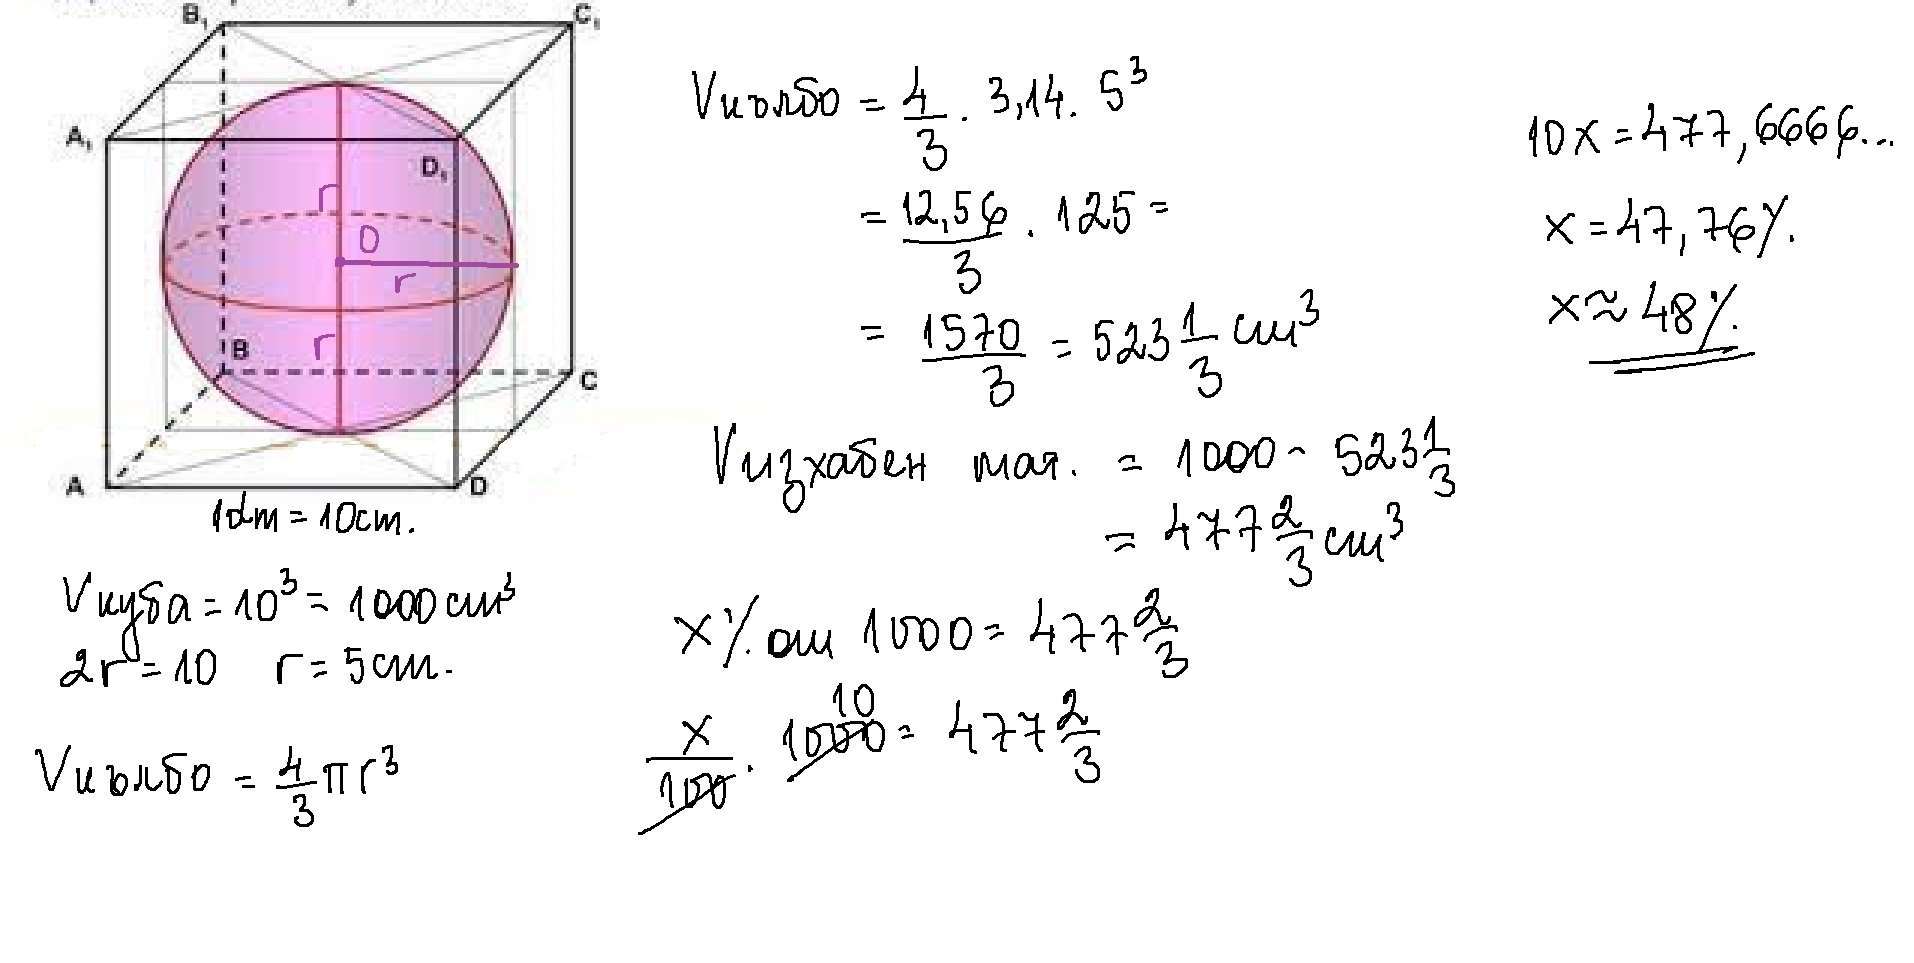 B₁ C₁
A₁
D₁
r
O
r
r
B
C
A D
1dm = 10cm.
Vкуба = 10³ = 1000 cm³
2r = 10 r = 5cm.
Vкълбо = 4/3 πr³
Vкълбо = 4/3 . 3,14. 5³
= 12,56/3 . 125 =
= 1570/3 = 523 1/3 cm³
Vизхабен мат. = 1000 - 523 1/3
= 477 2/3 cm³
x% от 1000 = 477 2/3
x/100 . 1000 = 477 2/3
10
10x = 477,6666...
x = 47,76%.
x ≈ 48%.